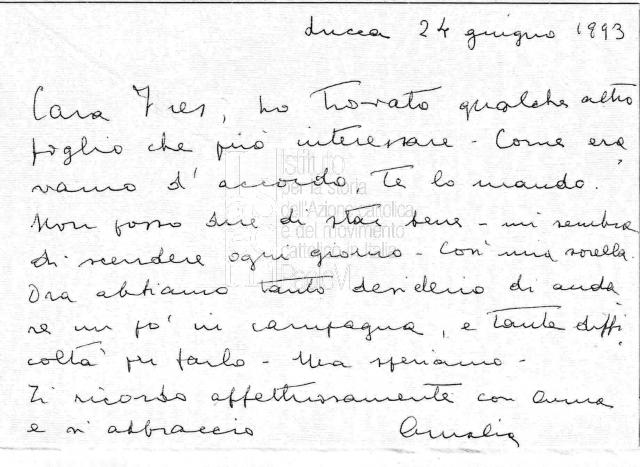 Lucca 24 giugno 1993
Cara Ines, ho trovato qualche altro
foglio che può interessare - Come era
vamo d'accordo te lo mando.
Non posso dire di star bene - mi sembra
di scendere ogni giorno - Così mia sorella.
Ora abbiamo tanto desiderio di anda
re un po' in campagna, e tante diffi
coltà per farlo - Ma speriamo -
Ti ricordo affettuosamente con Anna
e vi abbraccio Amalia
Istituto
per la storia
dell'Azione cattolica
e del movimento
cattolico in Italia
Paolo VI